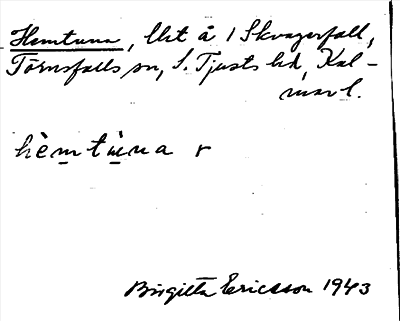 Hemtuna, llit å 1 Skvagerfall,
Törnsfalls sn, S. Tjusts hd, Kal-
mar l.
hèmtùna r
Birgitta Ericsson 1943